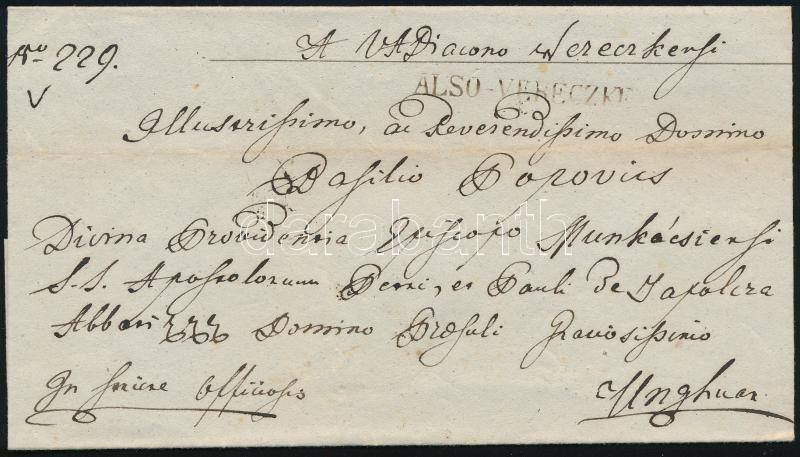 A VADiacono Vereczkensi
Nro 229.
ALSÓ-VERECZKE
Illustrissimo, ac Reverendissimo Domino
Basilio Popovics
darabanth
Divina Providentia Episcopo Munkácsiensi
S.S. Apostolorum Petri, et Pauli De Tapolcza
Abbati Domino Præsuli Gratiosissimo
In officioso
Unghvar